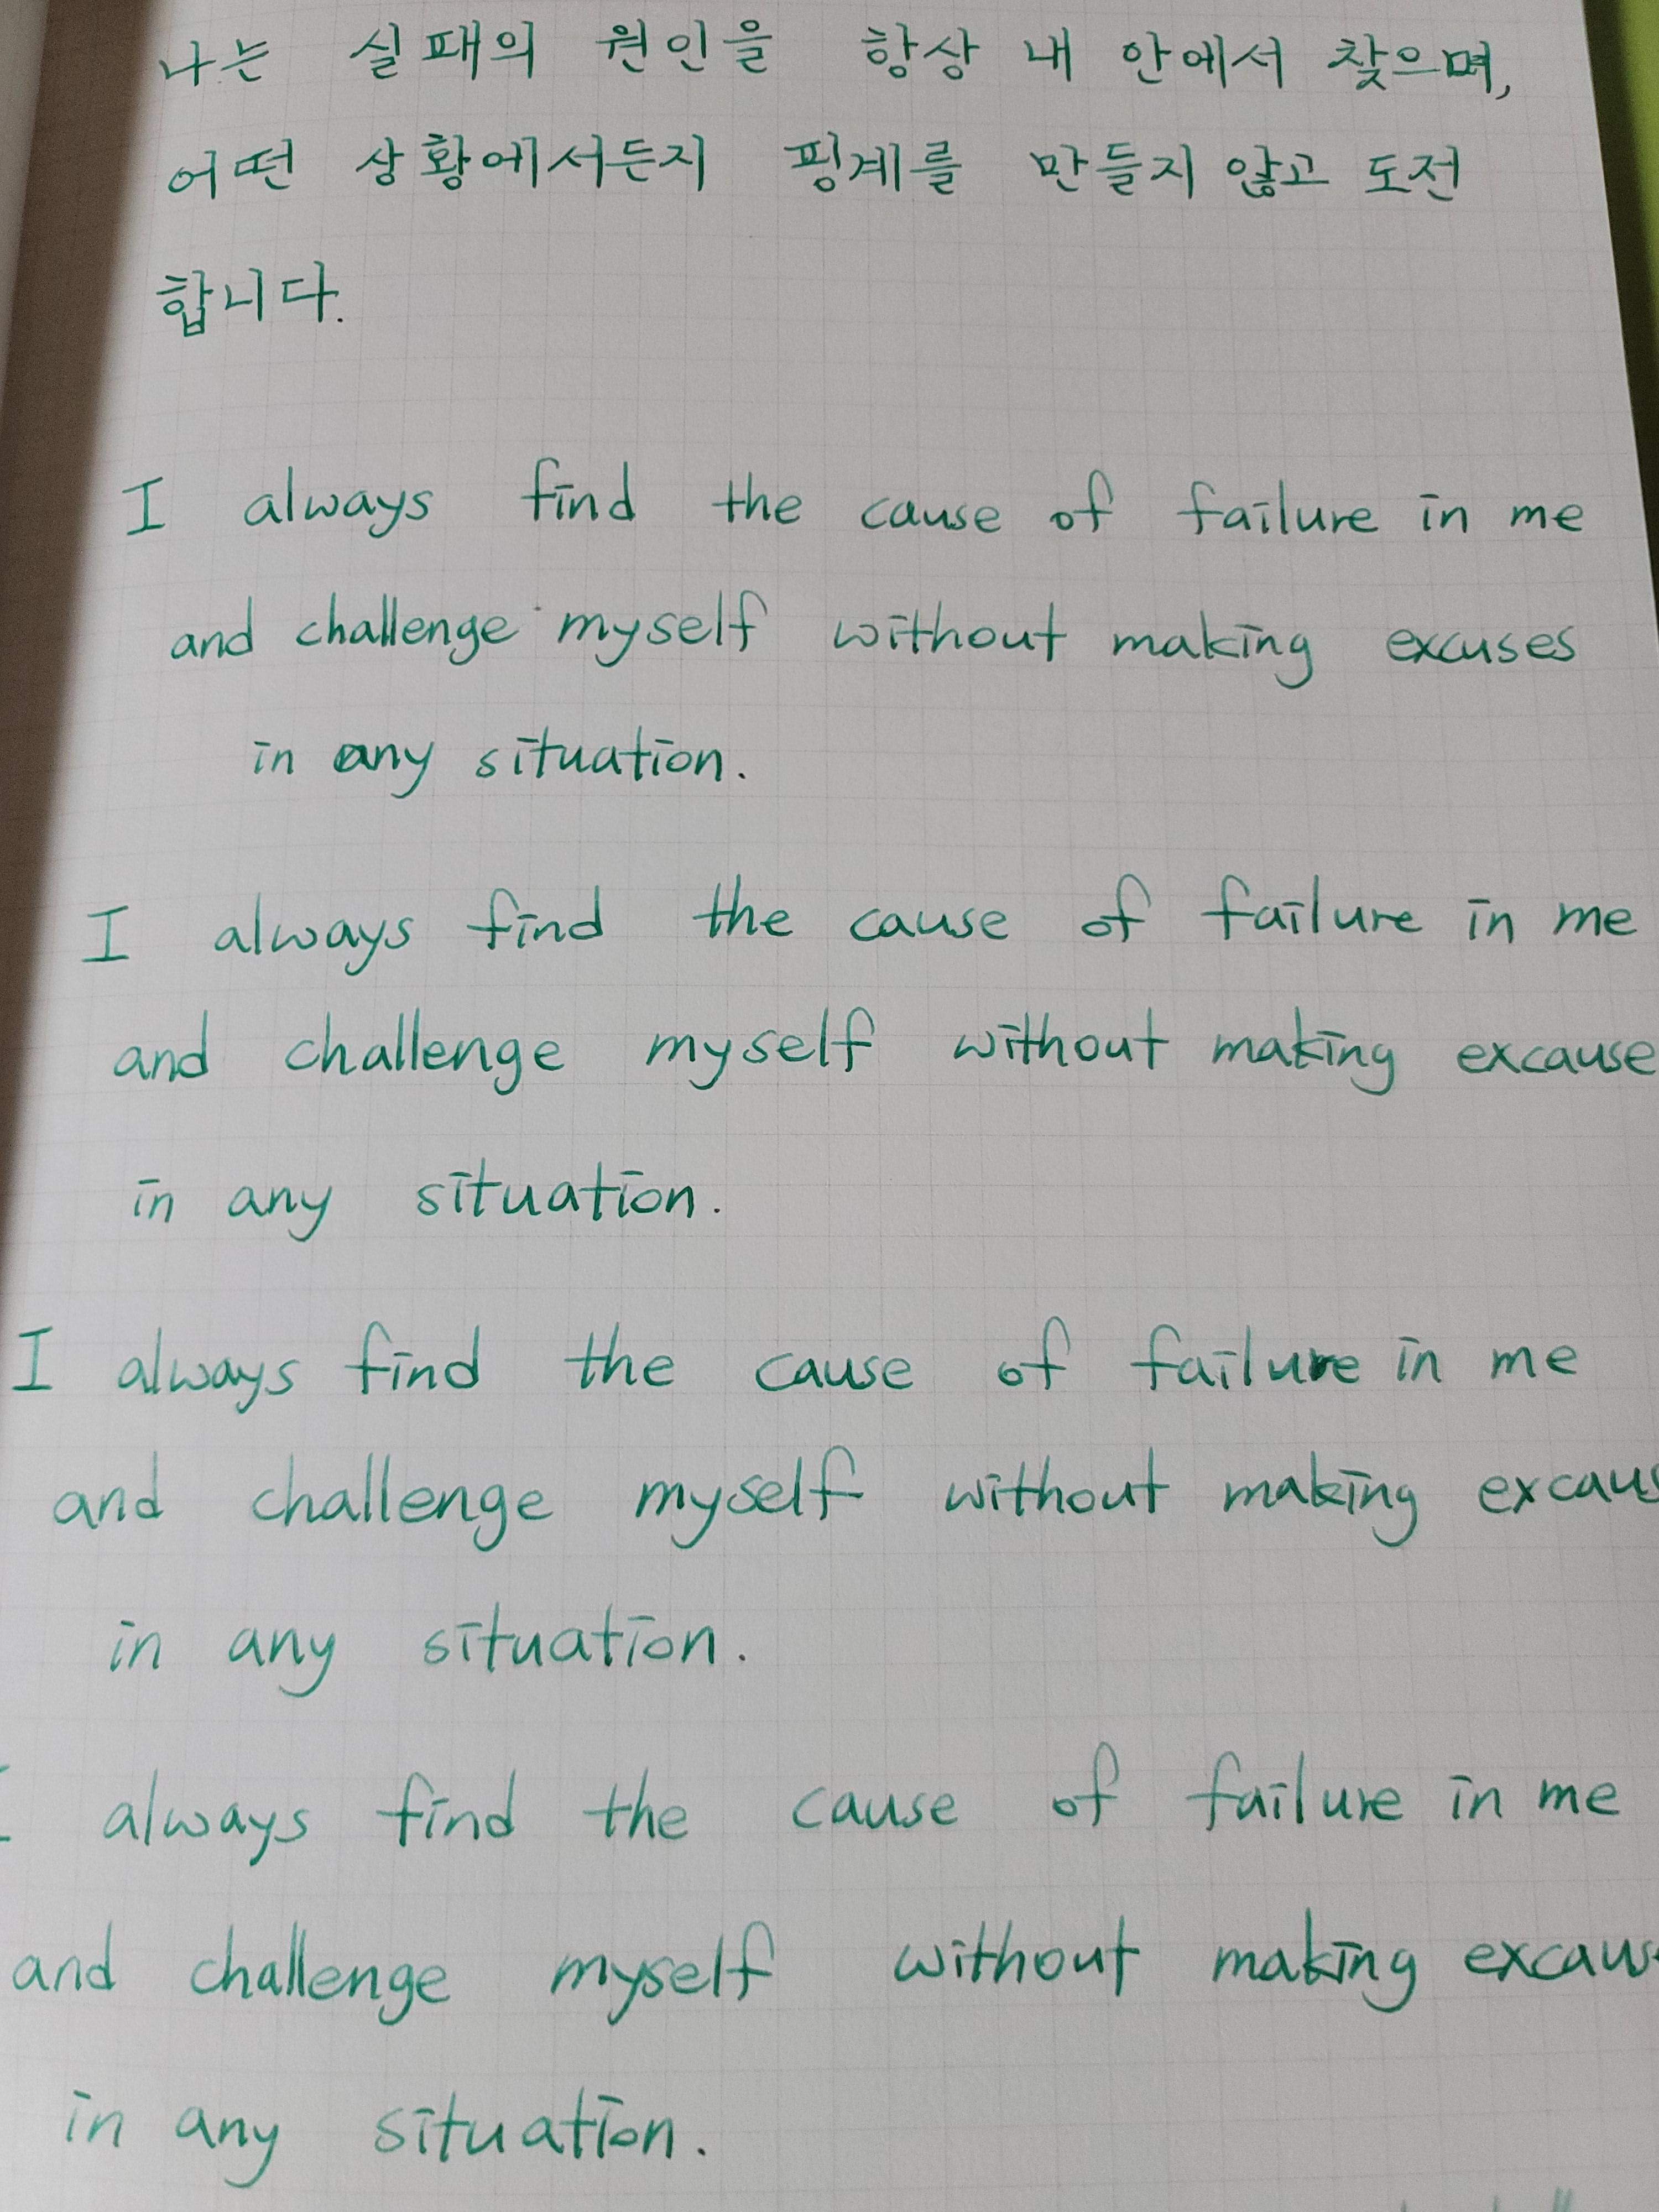 나는 실패의 원인을 항상 내 안에서 찾으며,
어떤 상황에서든지 핑계를 만들지 않고 도전
합니다.
I always find the cause of failure in me
and challenge myself without making excuses
in any situation.
I always find the cause of failure in me
and challenge myself without making excause
in any situation.
I always find the cause of failure in me
and challenge myself without making excaus
in any situation.
always find the cause of failure in me
and challenge myself without making excaus
in any situation.